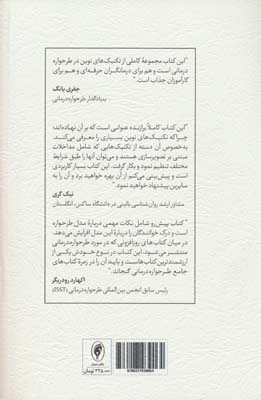 "این کتاب مجموعهٔ کاملی از تکنیک‌های نوین در طرحواره
درمانی است و هم برای درمانگران حرفه‌ای و هم برای
کارآموزان جذاب است."
جفری یانگ
بنیادگذار طرحواره‌درمانی
"این کتاب کاملاً برازنده عنوانی است که بر آن نهاده‌اند؛
چرا که تکنیک‌های نوین بسیاری را معرفی می‌کند.
به‌خصوص آن دسته از تکنیک‌هایی که شامل مداخلات
مبتنی بر تصویرسازی هستند و می‌توان آنها را طبق شرایط
مختلف تنظیم نمود و بکار گرفت. این کتاب بسیار کاربردی
است و پیش‌بینی می‌کنم از آن بهره خواهید برد و آن را به
سایرین پیشنهاد خواهید نمود."
نیک گری
مشاور ارشد روان‌شناسی بالینی در دانشگاه ساکس، انگلستان
"کتاب پیش‌رو شامل نکات مهمی دربارهٔ مدل طرحواره
است و درک خوانندگان را دربارهٔ این مدل افزایش می‌دهد.
در میان کتاب‌های روزافزونی که در مورد طرحواره‌درمانی
منتشر می‌شود. این کتاب در نوع خودش یکی از
ارزشمندترین کتاب‌هاست و باید آن را در زمرهٔ کتاب‌های
جامع طرحواره‌درمانی گنجاند."
اکهارد رودریگر
رئیس سابق انجمن بین‌المللی طرحواره‌درمانی (ISST)